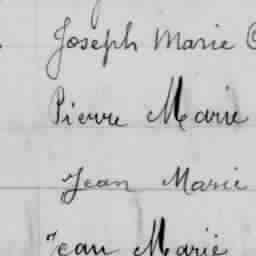 Joseph Marie
Pierre Marie
Jean Marie
Jean Marie